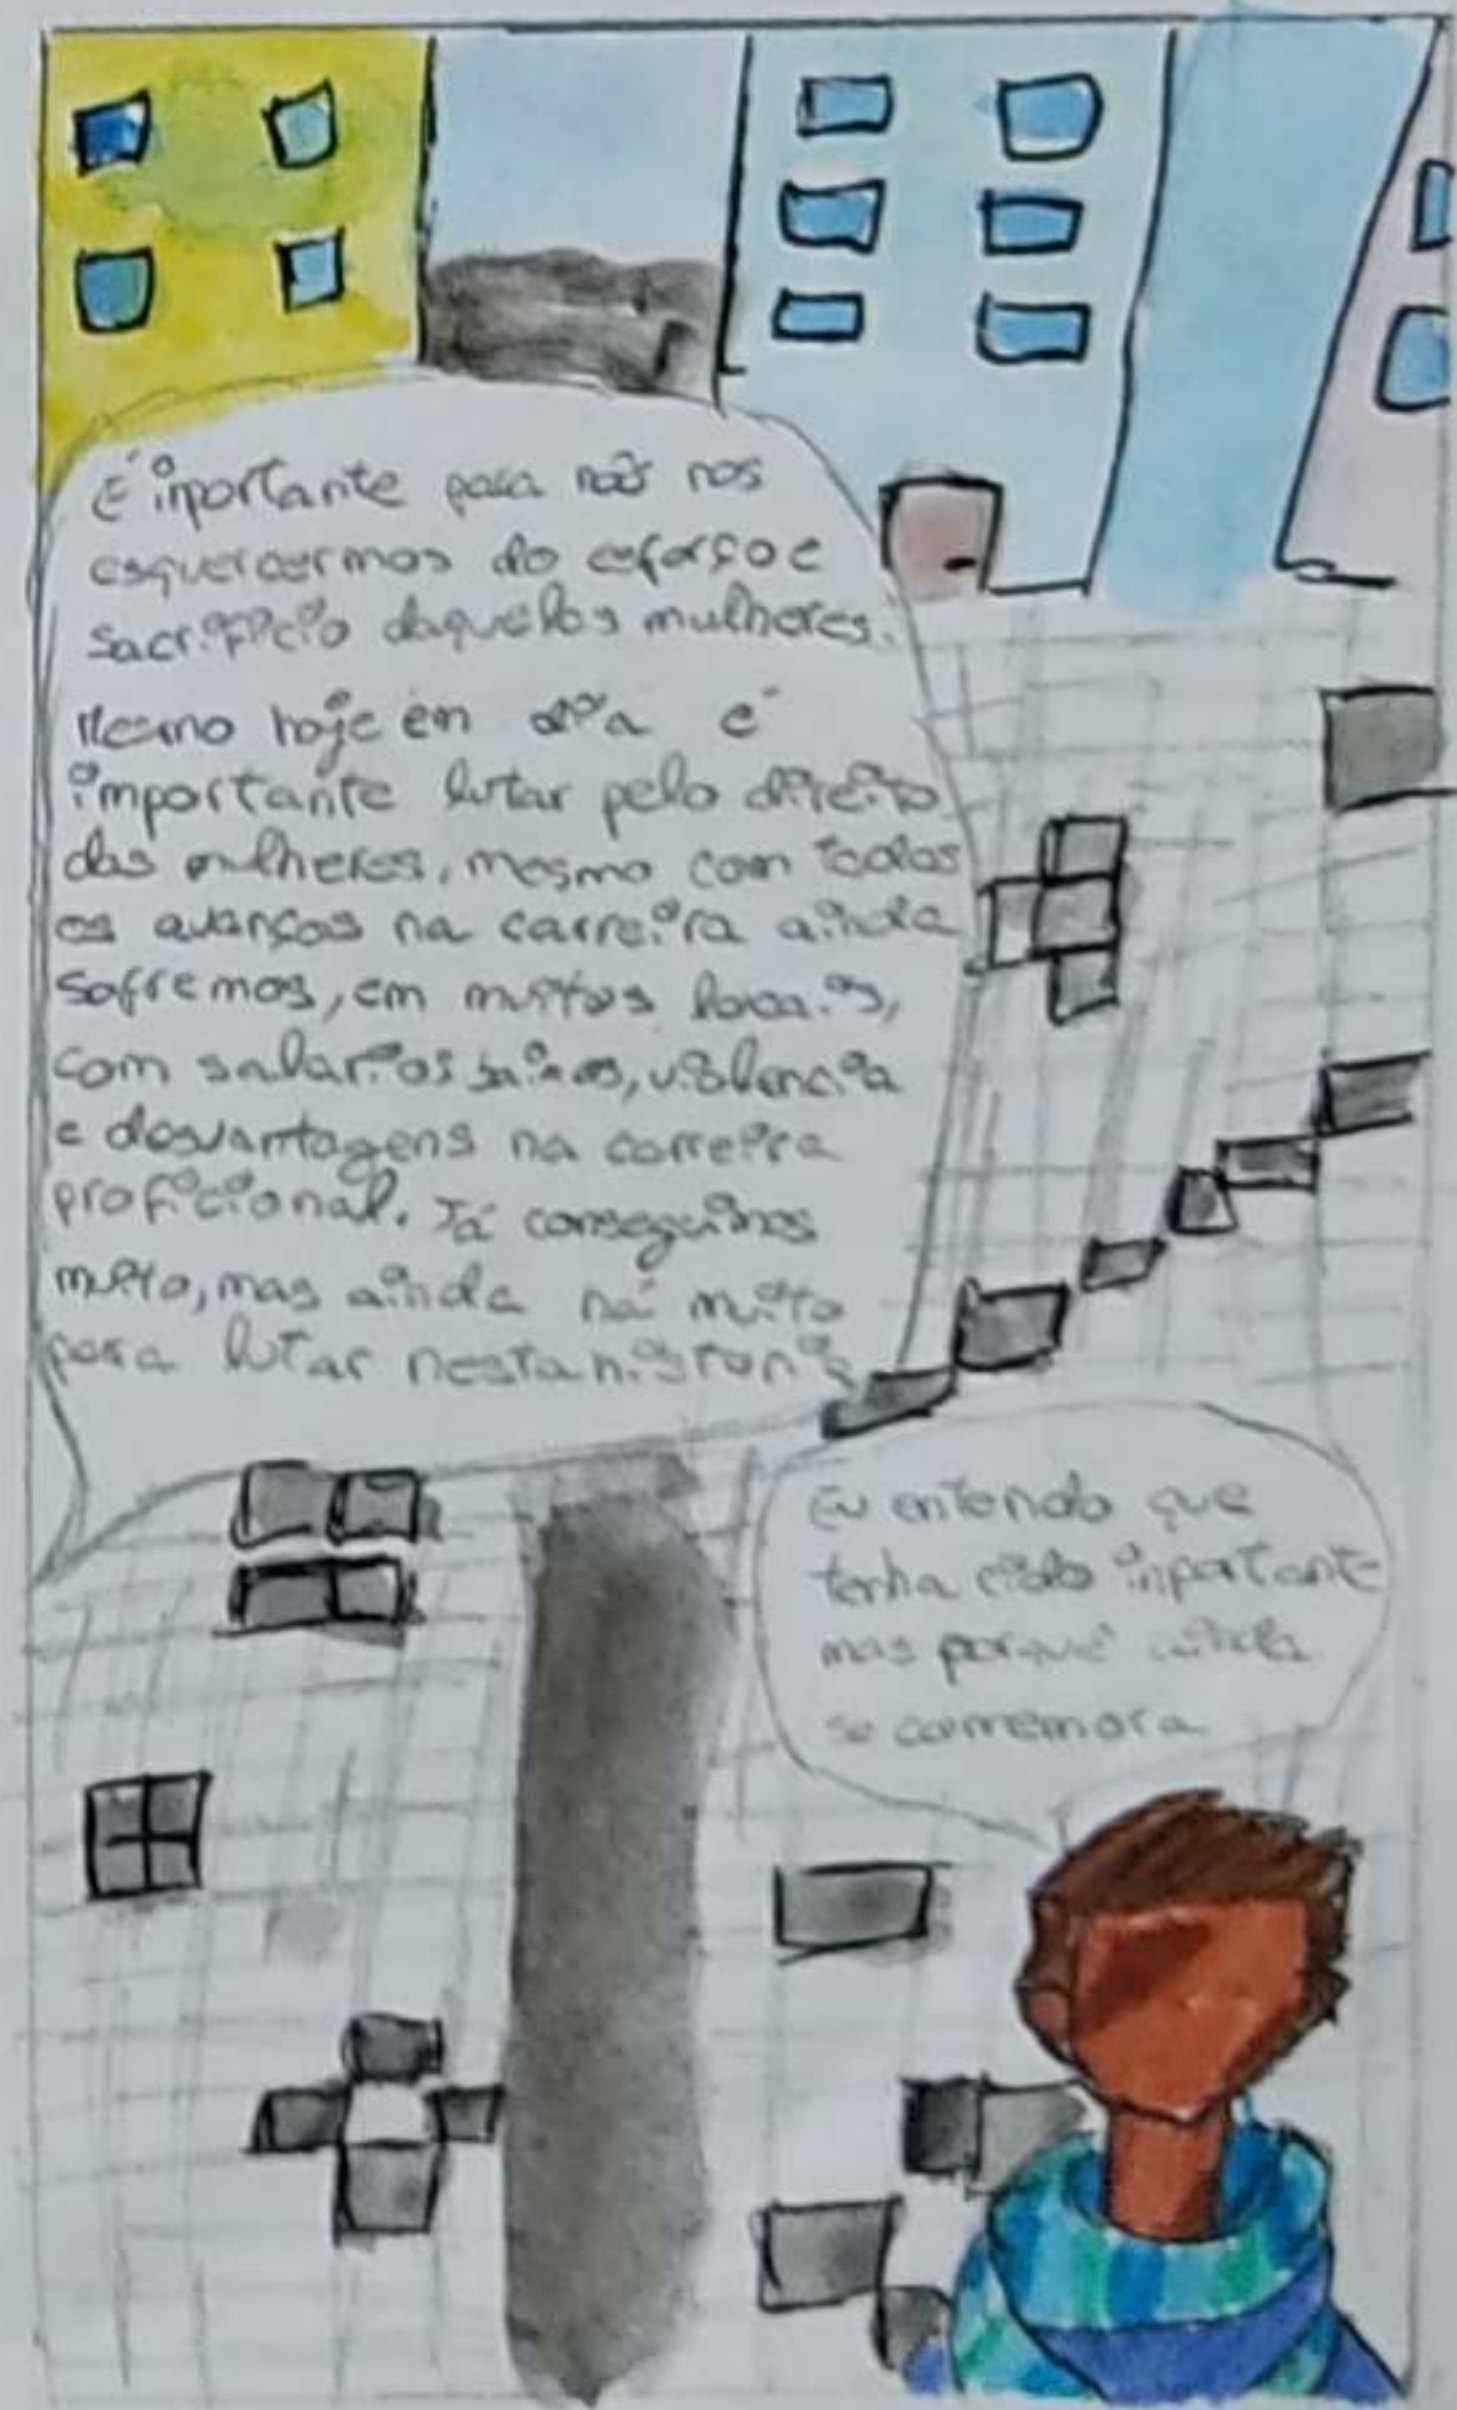 É importante para não nos
esquecermos do esforço e
sacrifício daquelas mulheres.
Mesmo hoje em dia é
importante lutar pelo direito
das mulheres, mesmo com todos
os avanços na carreira ainda
sofremos, em muitos locais,
com salarios baixos, violencia
e desvantagens na carreira
proficional. Já conseguimos
muito, mas ainda há muito
para lutar nesta
Eu entendo que
tenha cido inportante
mas porquê ainda
se comemora